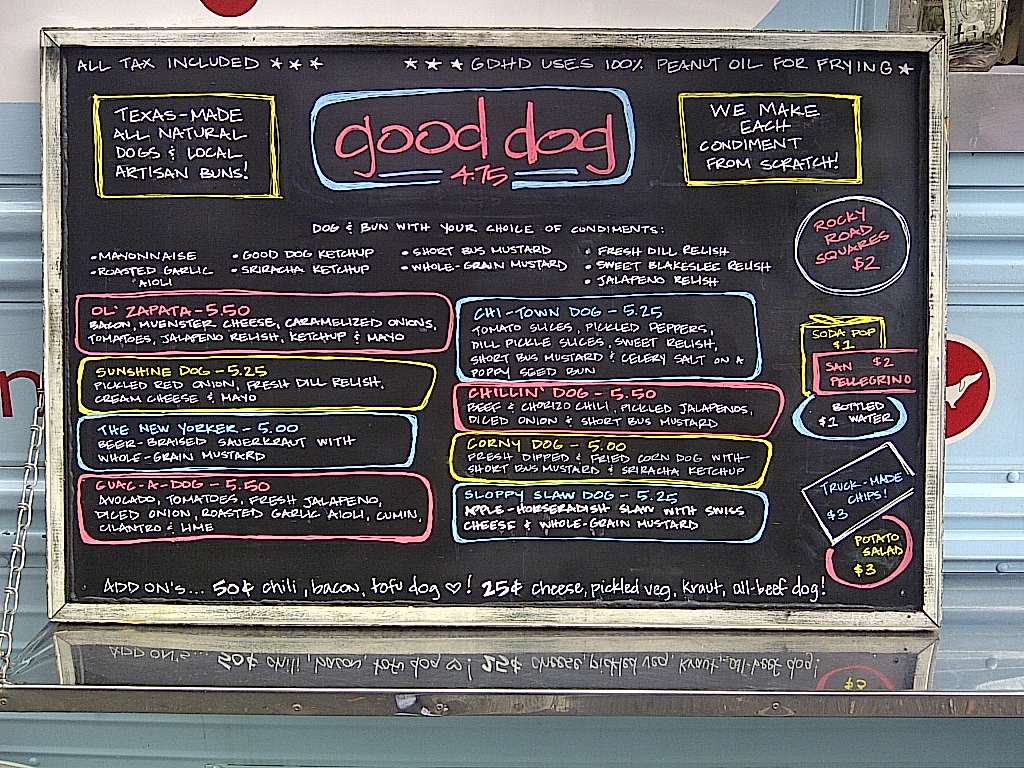 ALL TAX INCLUDED ★ ★ ★
★ ★ ★ GDHD USES 100% PEANUT OIL FOR FRYING ★
TEXAS-MADE
ALL NATURAL
DOGS & LOCAL
ARTISAN BUNS!
good dog
4.75
WE MAKE
EACH
CONDIMENT
FROM SCRATCH!
DOG & BUN WITH YOUR CHOICE OF CONDIMENTS:
•MAYONNAISE
•ROASTED GARLIC
AIOLI
•GOOD DOG KETCHUP
•SRIRACHA KETCHUP
•SHORT BUS MUSTARD
•WHOLE-GRAIN MUSTARD
•FRESH DILL RELISH
•SWEET BLAKESLEE RELISH
•JALAPENO RELISH
ROCKY
ROAD
SQUARES
$2
OL' ZAPATA-5.50
BACON, MUENSTER CHEESE, CARAMELIZED ONIONS,
TOMATOES, JALAPENO RELISH, KETCHUP & MAYO
SUNSHINE DOG-5.25
PICKLED RED ONION, FRESH DILL RELISH,
CREAM CHEESE & MAYO
THE NEW YORKER-5.00
BEER-BRAISED SAUERKRAUT WITH
WHOLE-GRAIN MUSTARD
GUAC-A-DOG-5.50
AVOCADO, TOMATOES, FRESH JALAPENO,
DICED ONION, ROASTED GARLIC AIOLI, CUMIN,
CILANTRO & LIME
CHI-TOWN DOG-5.25
TOMATO SLICES, PICKLED PEPPERS,
DILL PICKLE SLICES, SWEET RELISH,
SHORT BUS MUSTARD & CELERY SALT ON A
POPPY SEED BUN
CHILLIN' DOG-5.50
BEEF & CHORIZO CHILI, PICKLED JALAPENOS,
DICED ONION & SHORT BUS MUSTARD
CORNY DOG-5.00
FRESH DIPPED & FRIED CORN DOG WITH
SHORT BUS MUSTARD & SRIRACHA KETCHUP
SLOPPY SLAW DOG-5.25
APPLE-HORSERADISH SLAW WITH SWISS
CHEESE & WHOLE-GRAIN MUSTARD
SODA POP
$1
SAN $2
PELLEGRINO
BOTTLED
$1 WATER
TRUCK-MADE
CHIPS!
$3
POTATO
SALAD
$3
ADD ON'S... 50¢ chili, bacon, tofu dog ♡! 25¢ cheese, pickled veg, kraut, all-beef dog!